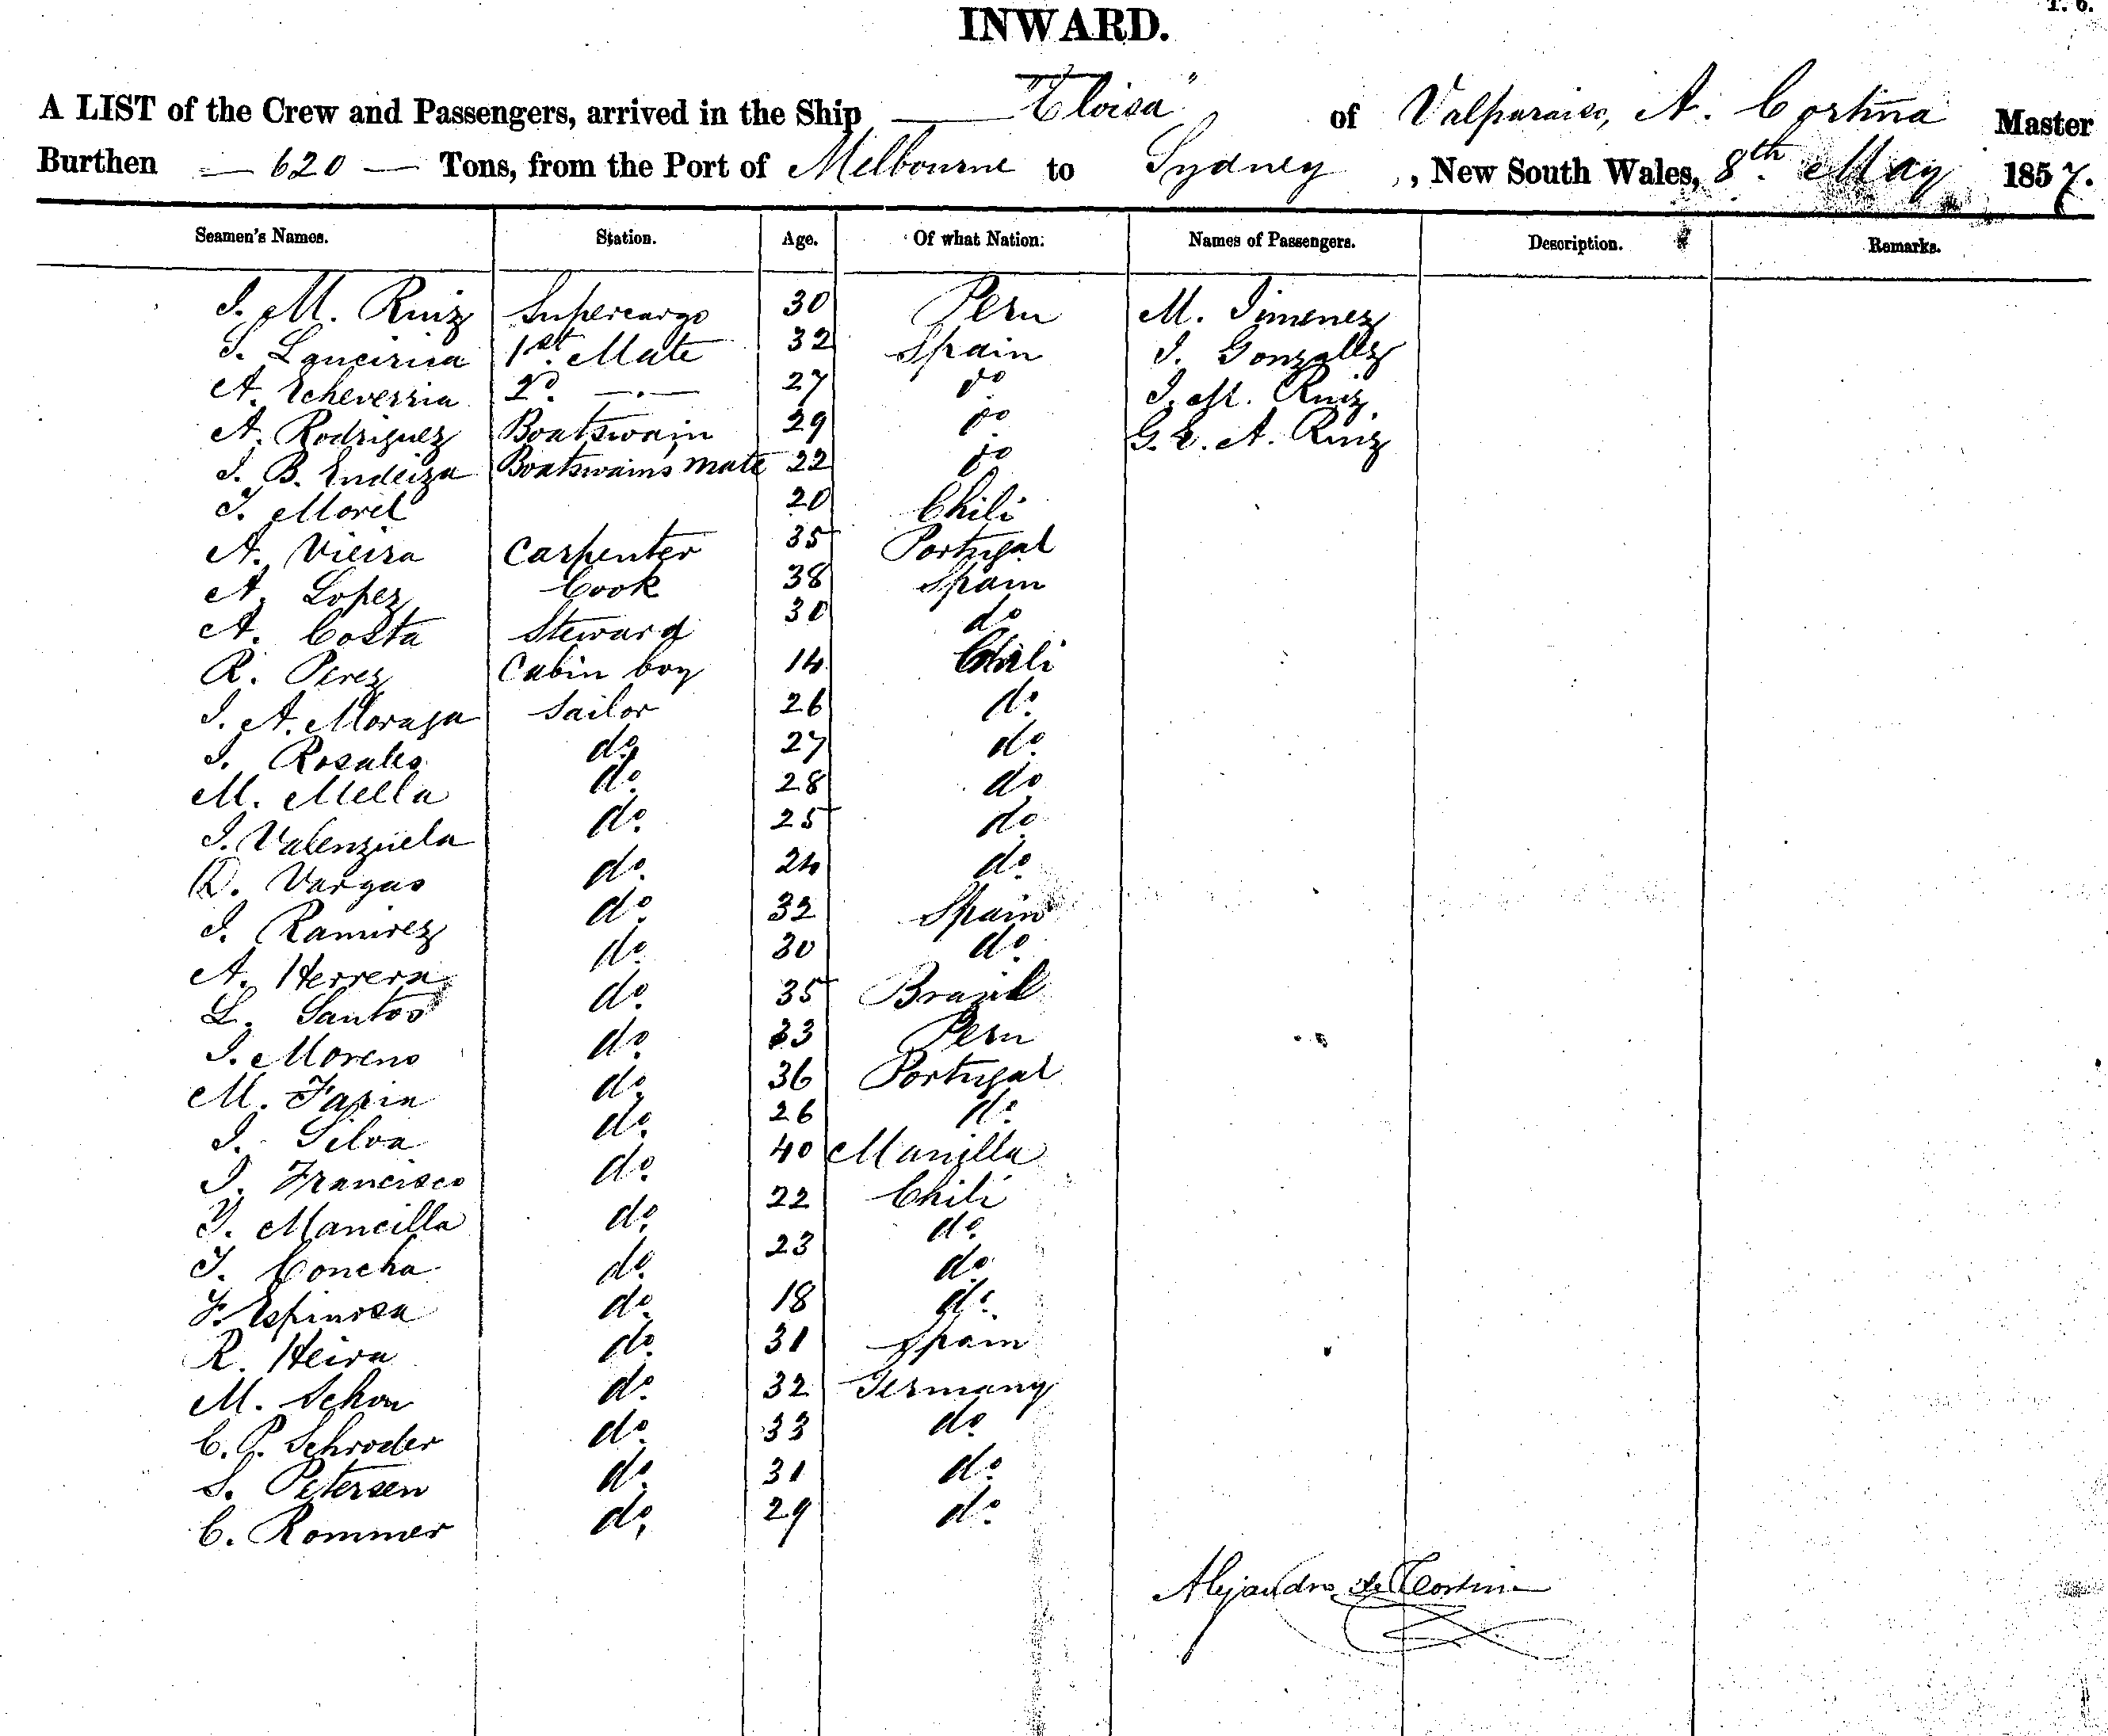 T. 6.
INWARD.
A LIST of the Crew and Passengers, arrived in the Ship "Eloisa" of Valparaiso, A. Cortina Master
Burthen 620 Tons, from the Port of Melbourne to Sydney, New South Wales, 8th May 1857.
Seamen's Names. Station. Age. Of what Nation. Names of Passengers. Description. Remarks.
J. M. Ruiz Supercargo 30 Peru M. Jimenez
1st Mate 32 Spain J. Gonzallez
A. Echeverria 2d. 27 do J. M. Ruiz
A. Rodriguez Boatswain 29 do G. E. A. Ruiz
J. B. Boatswains Mate 22 do
J. Morel 20 Chili
A. Vieira Carpenter 35 Portugal
A. Lopez Cook 38 Spain
A. Costa Steward 30 do
R. Perez Cabin boy 14 Chili
J. A. Moraga Sailor 26 do.
J. Rosales do. 27 do.
M. Mella do. 28 do
J. Valenzuela do. 25 do
D. Vargas do. 24 do.
J. Ramirez do. 32 Spain
A. Herrera do. 30 do.
L. Santos do. 35 Brazil
J. Moreno do. 33 Peru
M. Faria do. 36 Portugal
J. Silva do. 26 do.
J. Francisco do. 40 Manilla
J. Mancilla do. 22 Chili
J. Concha do. 23 do.
F. Espinosa do. 18 do.
R. Heira do. 31 Spain
M. Schon do. 32 Germany
C. P. Schroder do. 33 do
S. Petersen do. 31 do.
C. Rommer do. 29 do.
Alejandro de Cortina